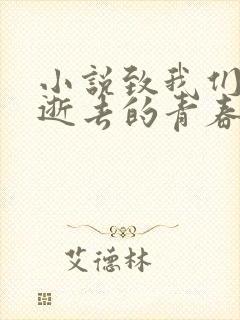 小说致我们
逝去的青春
艾德林